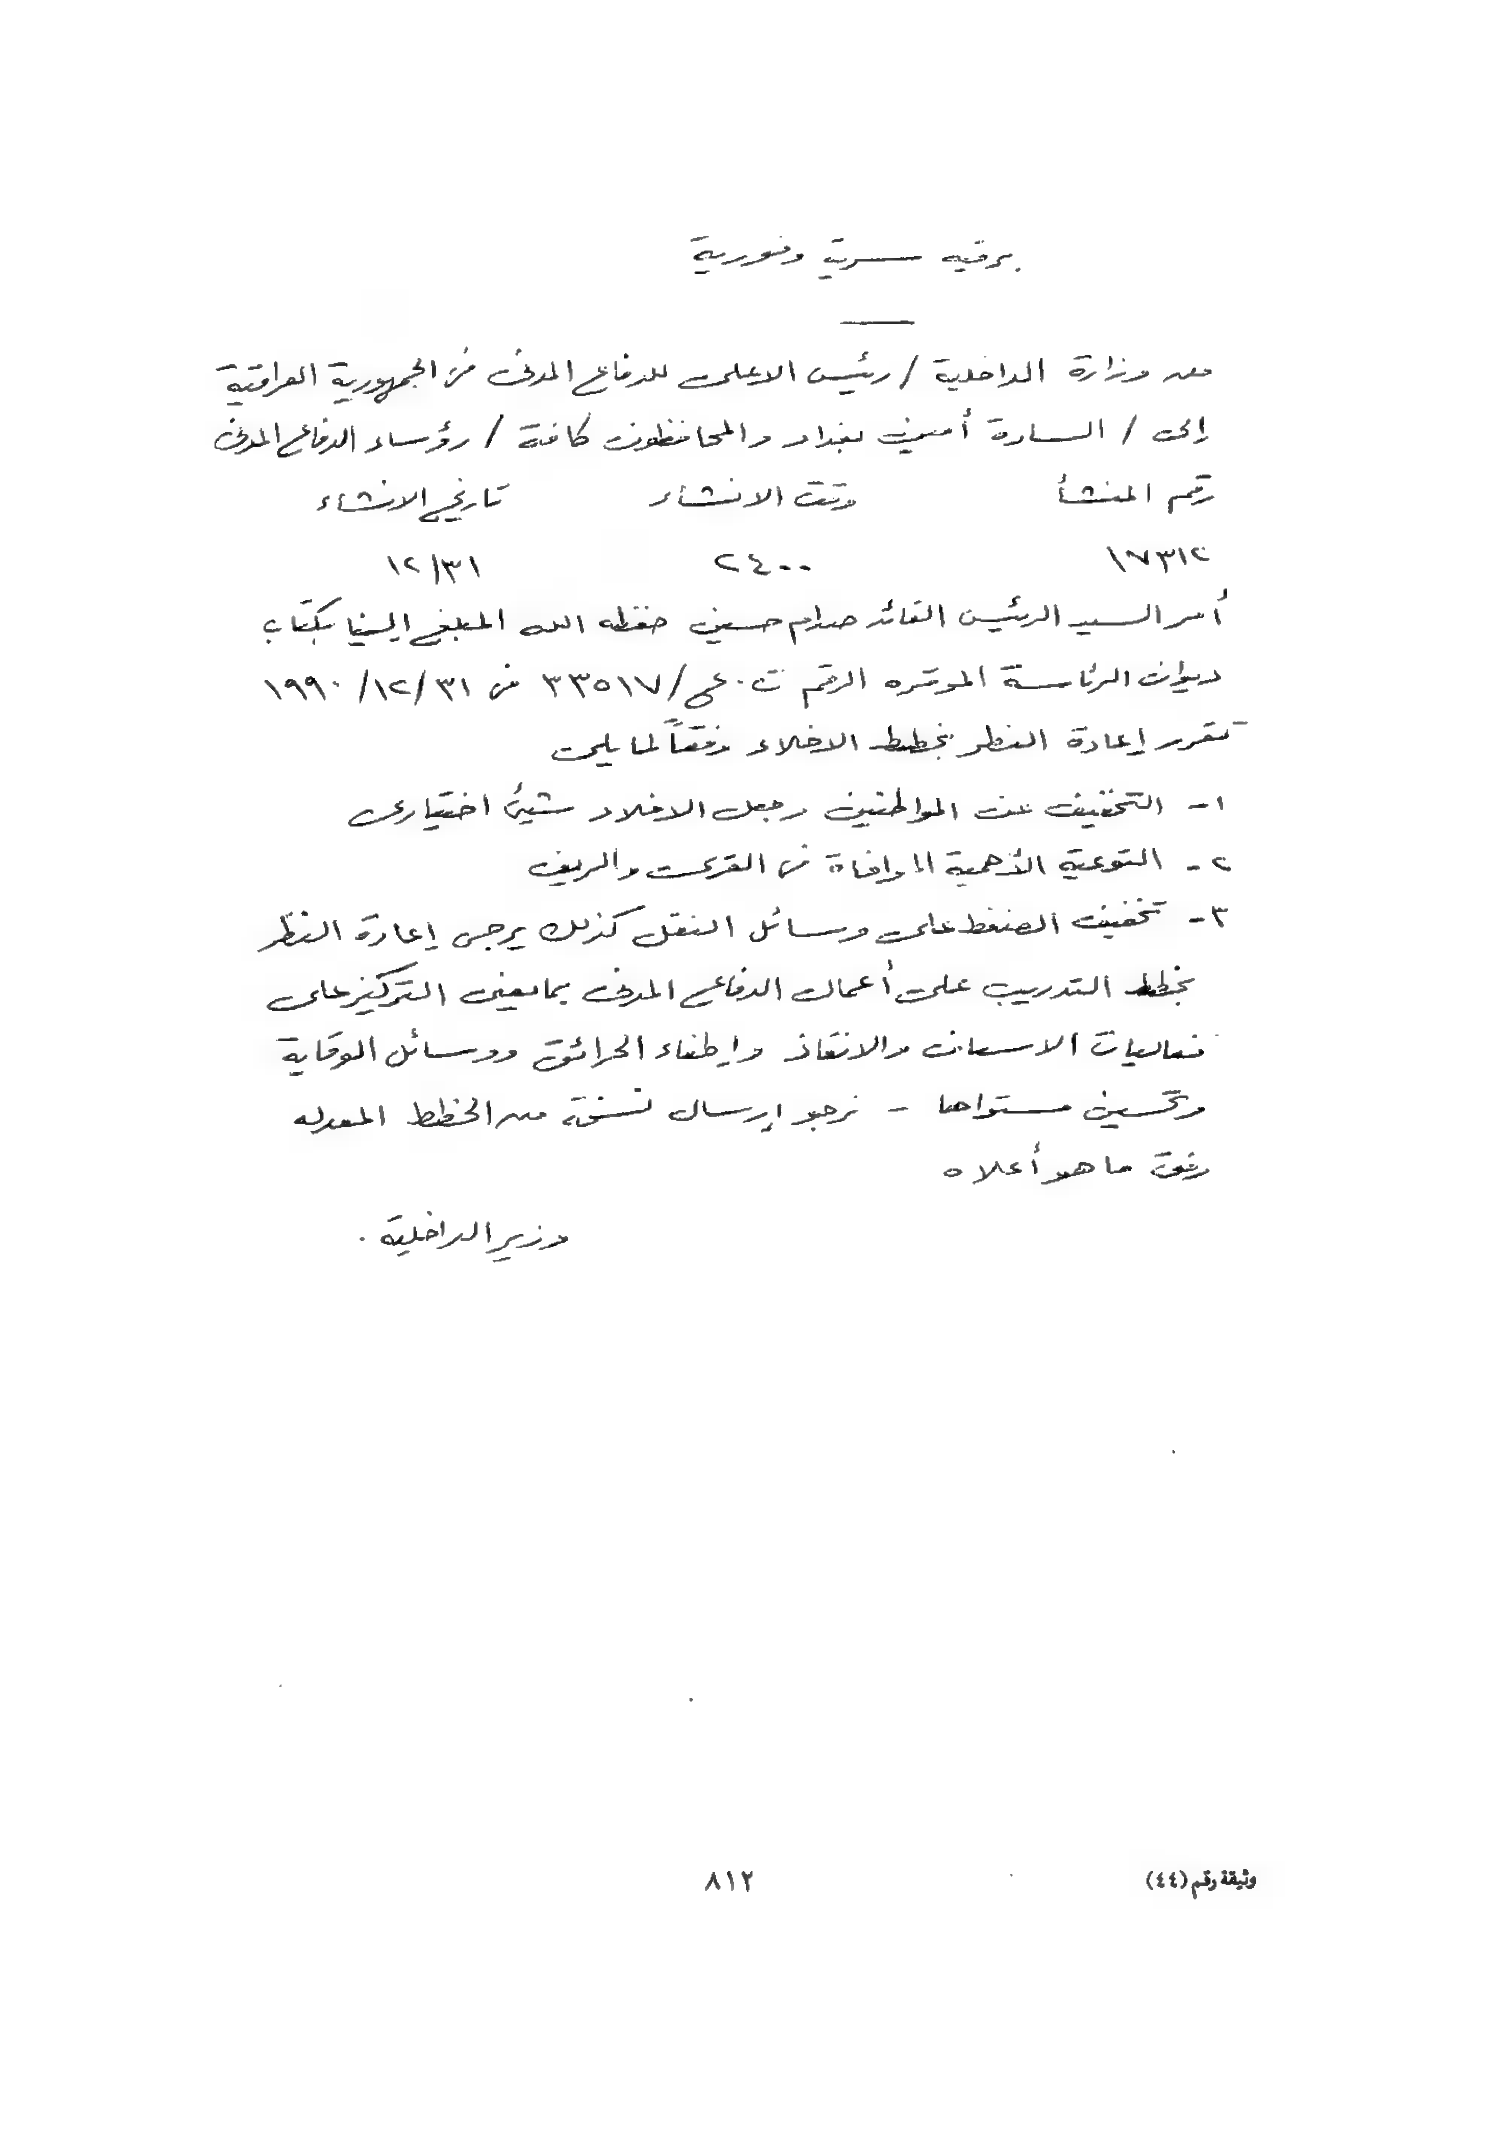 برقيه سرية وفورية
من وزارة الداخلية / رئيس الاعلى للدفاع المدني في الجمهورية العراقية
إلى / السادة أمين بغداد والمحافظون كافة / رؤساء الدفاع المدني
رقم المنشأ وقت الانشاء تاريخ الانشاء
١٧٣١٢ ٢٤٠٠ ١٢/٣١
أمر السيد الرئيس القائد صدام حسين حفظه الله المبلغ إلينا بكتاب
ديوان الرئاسة الموقره الرقم ت. ع/٣٣٥١٧ في ١٩٩٠/١٢/٣١
تقرر إعادة النظر بخطط الاخلاء وفقاً لما يلي
١- التخفيف عن المواطنين وجعل الاخلاء شيئ اختياري
٢- التوعية لأهمية في القرى والريف
٣- تخفيف الضغط على وسائل النقل كذلك يرجى إعادة النظر
بخطط التدريب على أعمال الدفاع المدني بما يعني التركيز على
فعاليات الاسعاف والانقاذ وإطفاء الحرائق ووسائل الوقاية
وتحسين مستواها - نرجو إرسال نسخة من الخطط المعدله
وفق ما هو أعلاه
وزير الداخلية .
وثيقة رقم (٤٤) ٨١٢